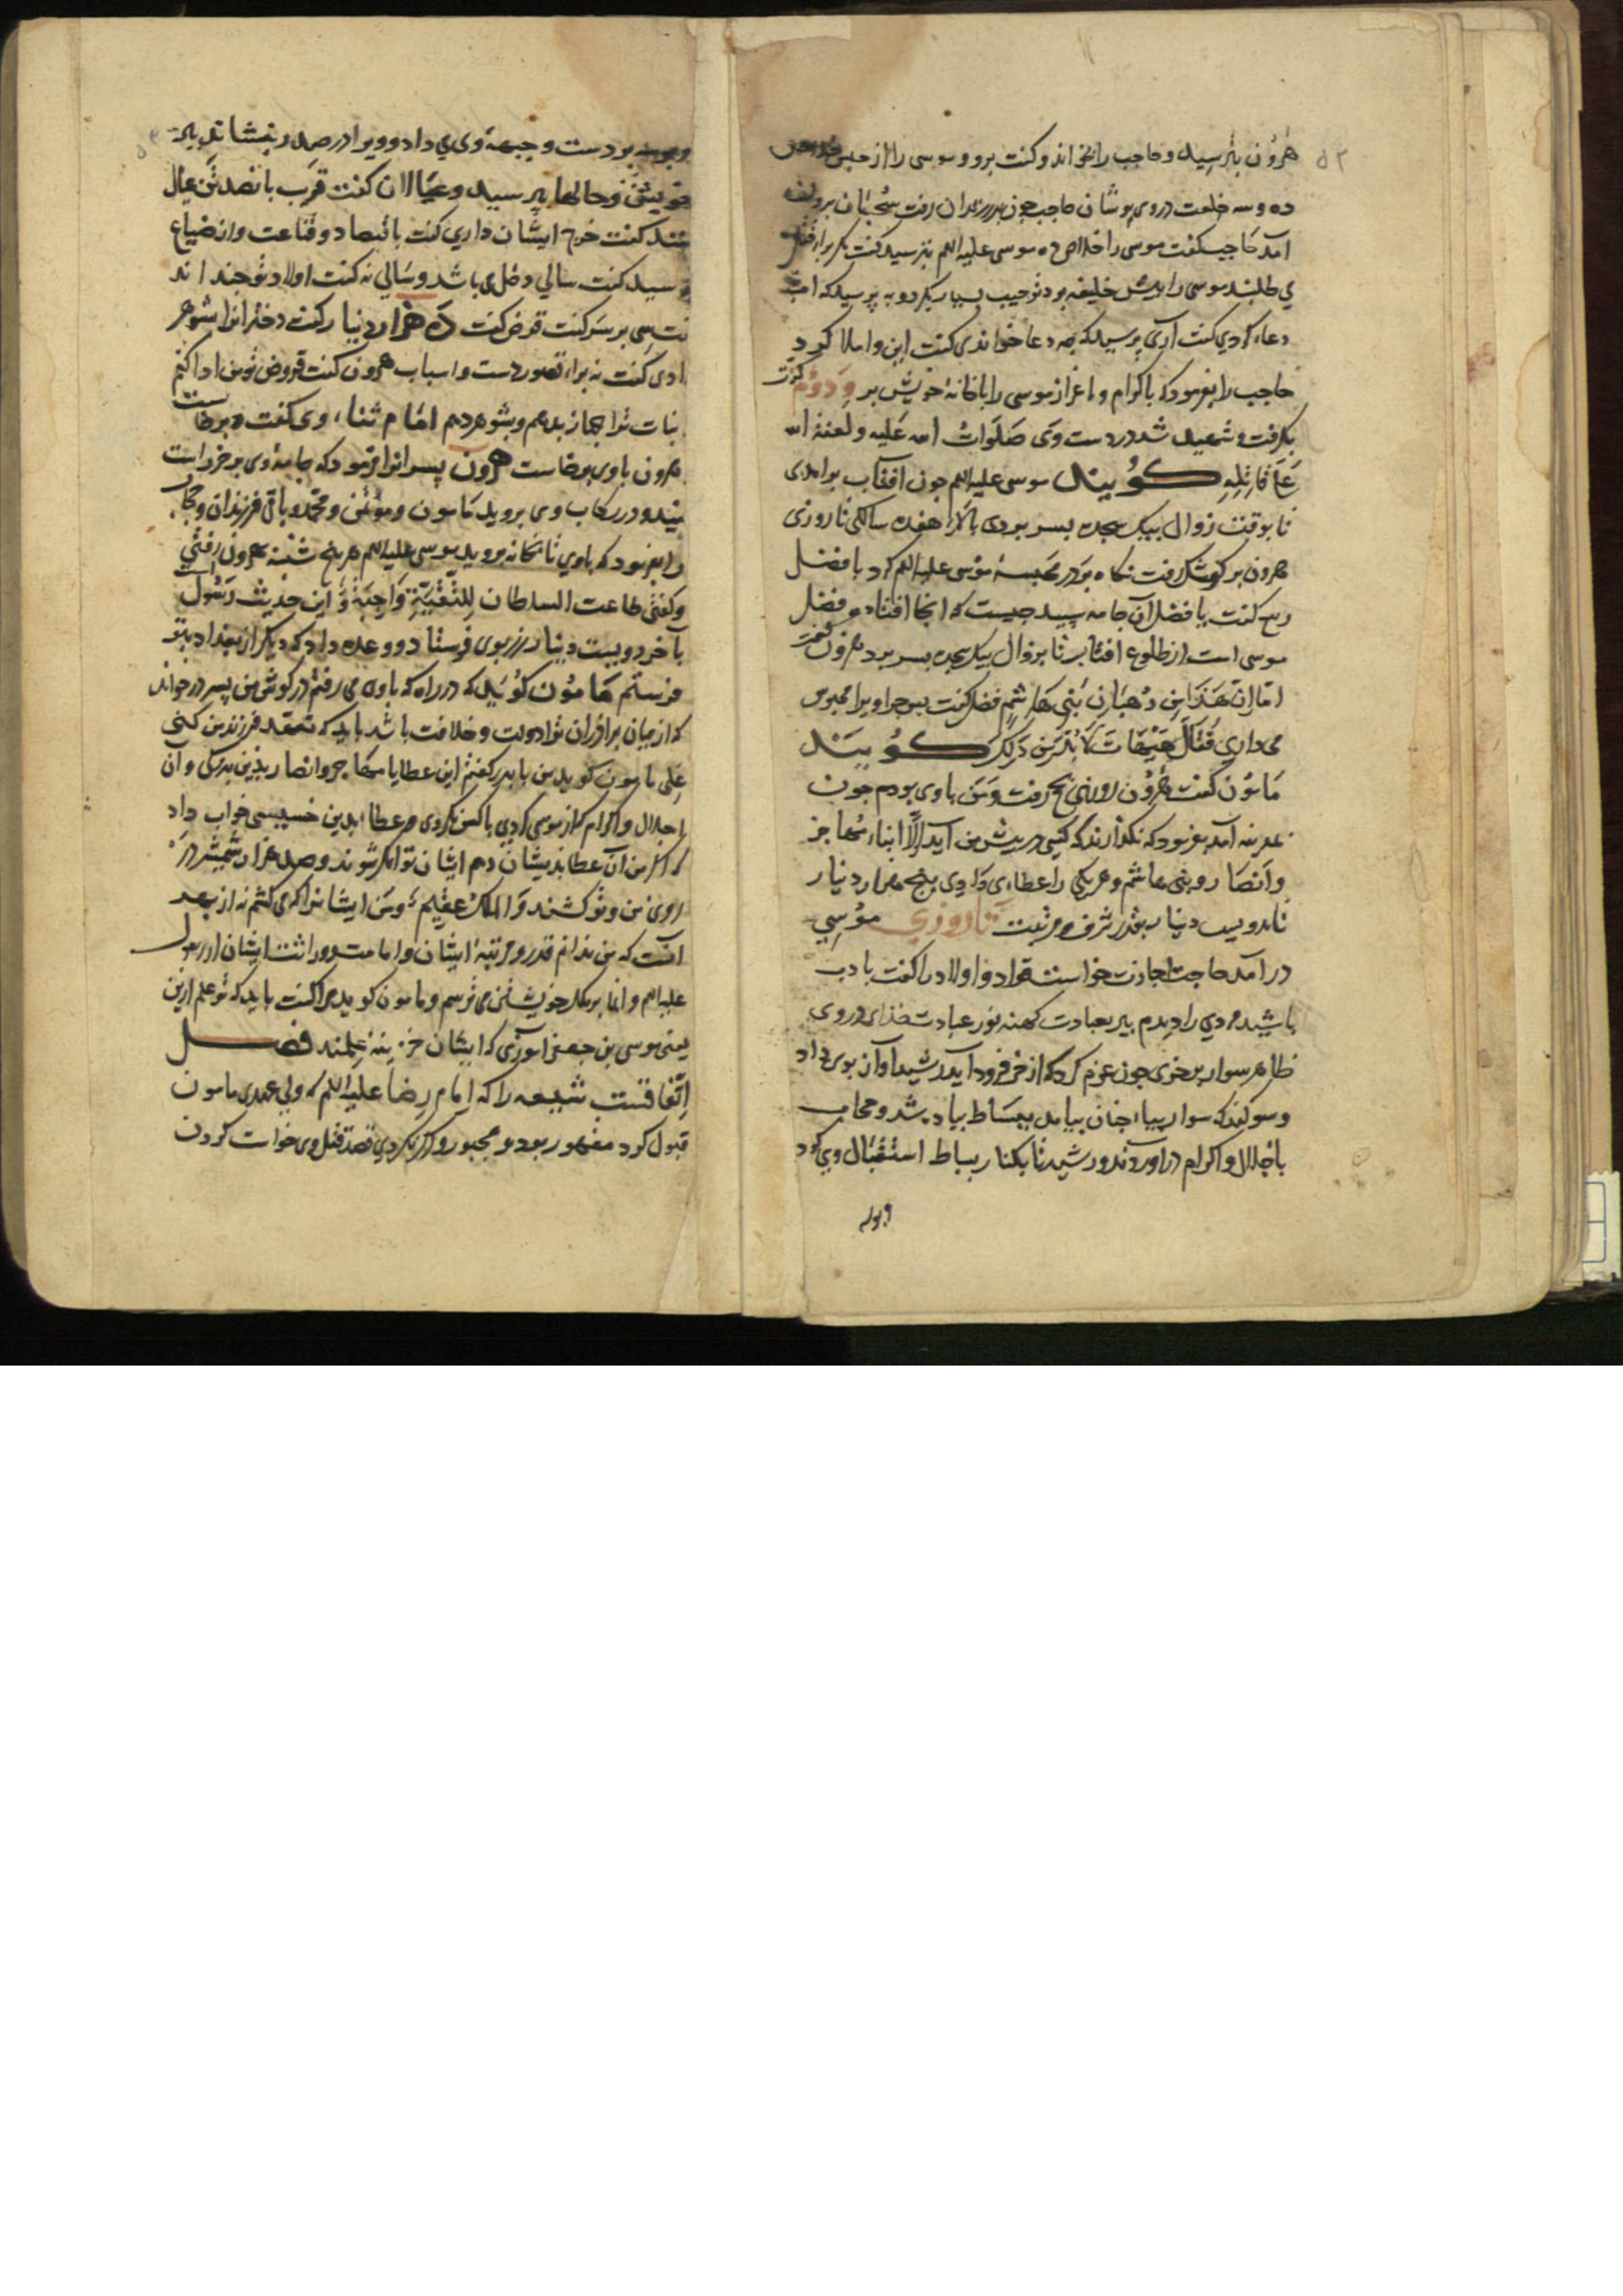 هرون بترسید و حاجب را بخواند و کفت برو و موسی را از حبس خلاص
ده و سه خلعت در وی پوشان حاجب چون بدر زندان رفت سجبان برون
آمد حاجب کفت موسی را خلاص ده موسی علیه السلم بترسید کفت مکر برای قتل
می طلبند موسی را پیش خلیفه برد ترحیب بسیار بکرد و به پرسید که امشب
دعا کردی کفت آری پرسید که چه دعا خواندی کفت این و املا کرد
حاجب را بفرمود که باکرام و اعزاز موسی را باخانهٔ خویش بر و دوم کرت
بکرفت و شهید شد در دست وی صلوات الله علیه و لعنة الله
علی قاتله کویند موسی علیه السلم چون افتاب برامدی
تا بوقت زوال بیک سجده بسر بردی هفده سالکی تا روزی
هرون بر کوشک رفت نکاه بر در محبسهٔ موسی علیه السلم کرد با فضل
ربیع کفت یا فضل آن جامه سپید چیست که انجا افتاده فضل کفت
موسی است از طلوع افتاب تا بزوال بیک سجده بسر برد هرون
اما ان هذا من رهبان بنی هاشم فضل کفت پس چرا ویرا محبوس
می داری فقال هیهات لا بد من ذلک کویند
مامون کفت هرون روزی بحج رفت و من باوی بودم چون
بمدینه آمد بفرمود که نکذارند که کسی در پیش من آید الا ابناء مهاجر
و انصار و بنی هاشم و هر یکی را عطای دادی پنج هزار دینار
تا دویست دینار بقدر شرف و مرتبت تا روزی موسی
در آمد حاجب اجازت خواست قواد و اولاد را کفت با ادب
باشید مردی را دیدم پیر بعبادت کهنه نور عبادت خدای در وی
ظاهر سوار بر خری چون عزم کرد که از خر فرود آید رشید آواز بوی داد
و سوکند که سوار بیا چنان بیامد ببساط پیاده شد و حجاب
باجلال و اکرام در اوردند و رشید تا بکنار بساط استقبال وی کرد
و بوسه
و بوسه بر دست و جبههٔ وی می داد و ویرا در صدر بنشاند بجنب
خویشتن و حالها پرسید و عیالان کفت قرب پانصد تن عیال
منند کفت خرج ایشان داری کفت باقتصاد و قناعت و از ضیاع
پرسید کفت سالی دخلی باشد و سالی نه کفت اولاد تو چند اند
کفت سی پرسید کفت قرض کفت ده هزار دینار کفت دخترانرا بشوهر
دادی کفت نه برای قصور دست و اسباب هرون کفت قروض تو من ادا کنم
بنات ترا جهاز بدهم و بشوهر دهم امام ثنای وی کفت و برخاست
هرون باوی برخاست هرون پسرانرا فرمود که جامهٔ وی بر خر راست
کنید و در رکاب وی بروید مامون و موتمن و محمد و باقی فرزندان و حجاب
را بفرمود که باوی تا بخانه بروید موسی علیه السلم هر پنج شنبه بهرون رفتی
و کفتی طاعت السلطان للتقیة واجبة و این حدیث رسول است
بآخر دویست دینار زر بوی فرستاد و وعده داد که دیکر از بغداد بتو
فرستم مامون کوید که در راه که باوی می رفتم در کوش من پسر در خواند
که از میان برادران ترا دولت و خلافت باشد باید که تعهد فرزند من کنی
علی مامون کوید من با پدر کفتم این عطایا مهاجر و انصار بدین بزرکی و آن
اجلال و اکرام کز موسی کردی با کس نکردی و عطا بدین خسیسی جواب داد
که اکر من آن عطا بدیشان دهم ایشان توانکر شوند و صد هزار شمشیر در
روی من و تو کشند و الملک عقیم و من ایشانرا اکرام کنم نه از بهر
آنست که من ندانم قدر و مرتبهٔ ایشان و امامت و وراثت ایشان از رسول
علیه السلم و اما بر ملک خویشتن می ترسم و مامون کوید مرا کفت باید که تو علم ازین
یعنی موسی بن جعفر آموزی که ایشان خزینهٔ علمند فصل
اتفاقست شیعه را که امام رضا علیه السلم که ولی عهدی مامون
قبول کرد مقهور بود و مجبور و اکر نکردی قصد قتل وی خواست کردن